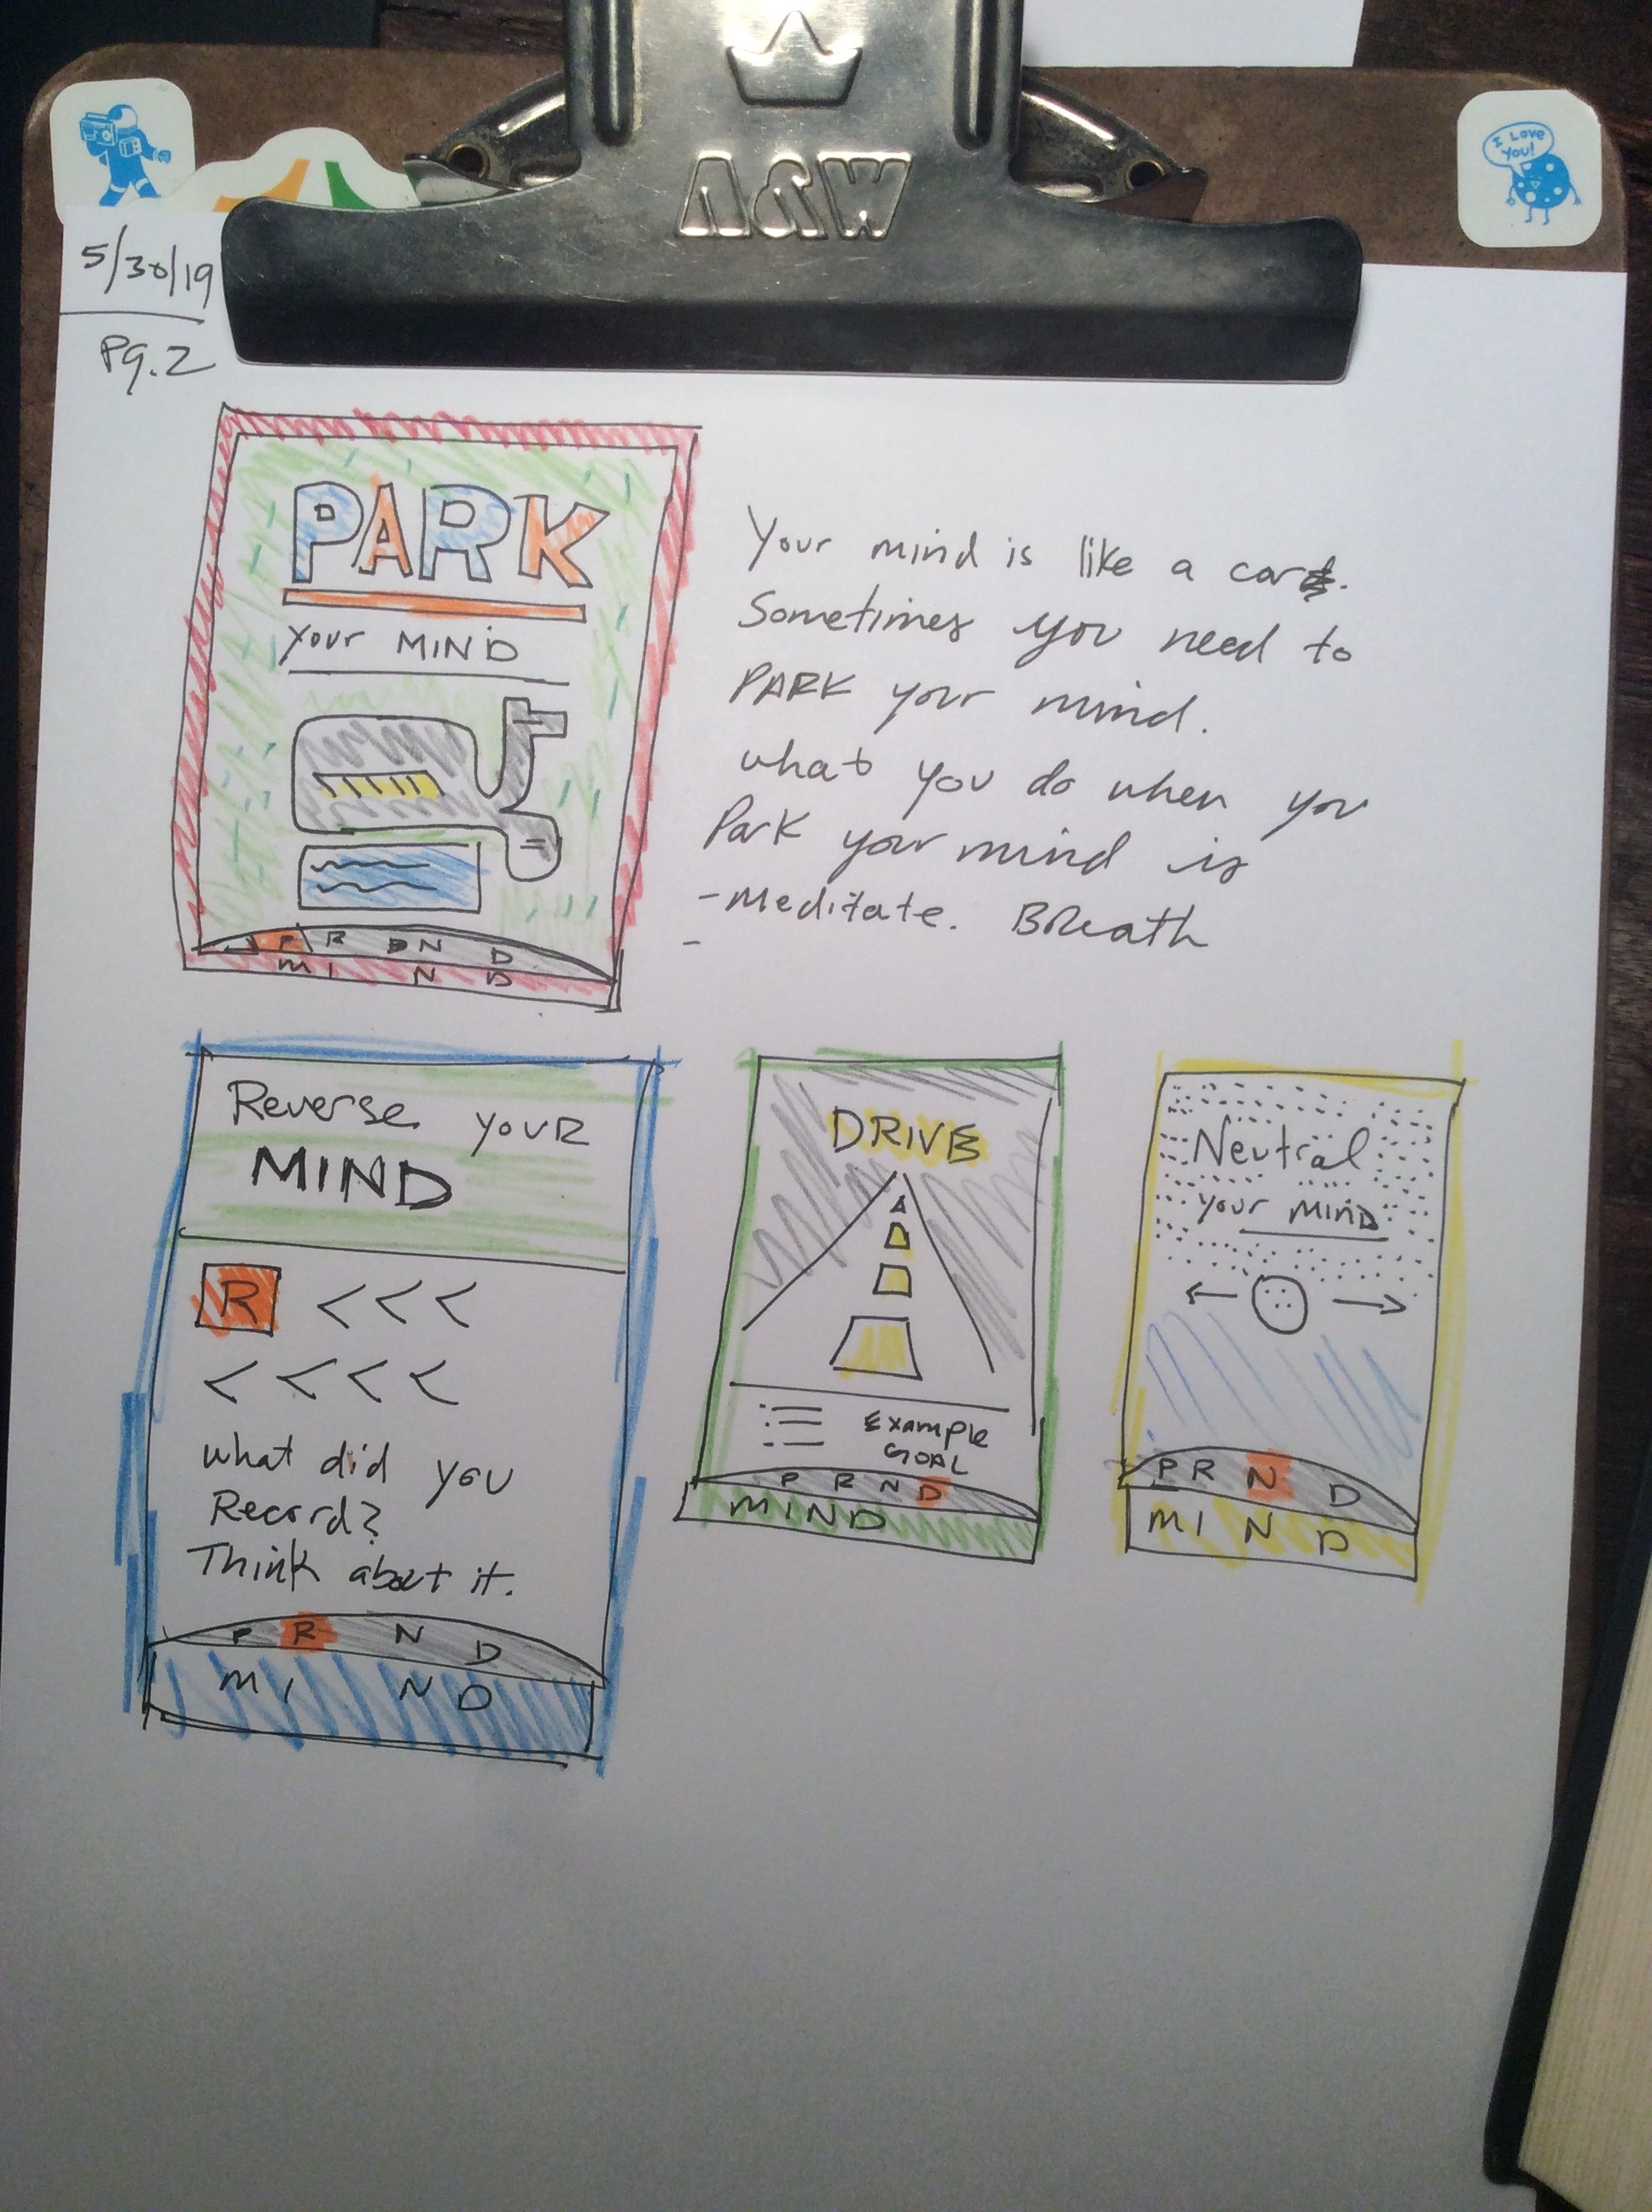 I LOVE
YOU!
A&W
5/30/19
Pg. 2
PARK
your MIND
P R N D
M I N D
Your mind is like a car.
Sometimes you need to
PARK your mind.
what you do when you
Park your mind is
- Meditate. BReath
-
Reverse youR
MIND
R < < <
< < < <
what did you
Record?
Think about it.
P R N D
M I N D
DRIVE
Example
GOAL
P R N D
MIND
Neutral
your MIND
← →
P R N D
M I N D